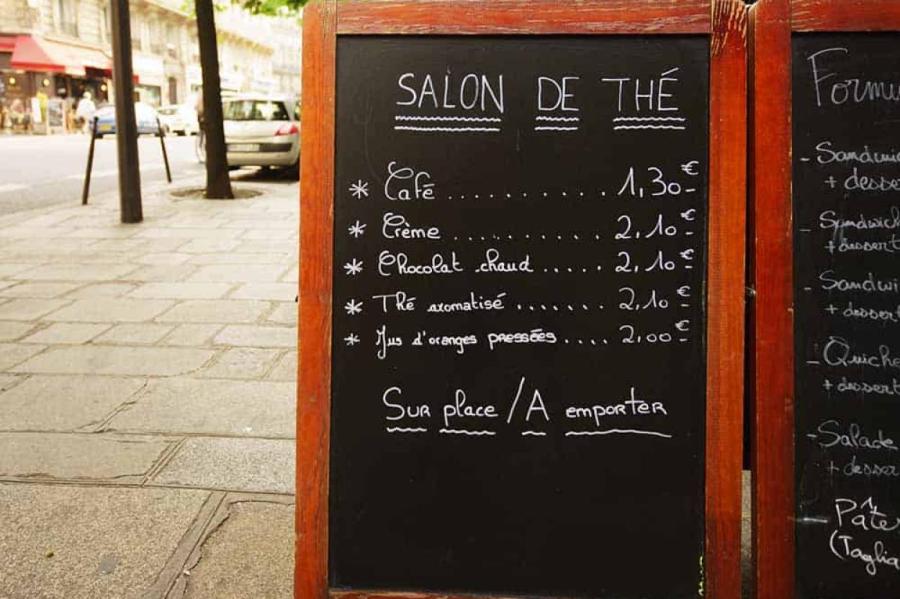 SALON DE THÉ
* Café .......... 1,30€
* Crème .......... 2,10€
* Chocolat chaud ..... 2,10€
* Thé aromatisé ....... 2,10€
* Jus d'oranges pressées .... 2,00€
Sur place / A emporter
- Sandwi
+ desse
- Sandwich
+ dessert
- Sandwi
+ dessert
- Quiche
+ dessert
- Salade
+ desser
(Taglia